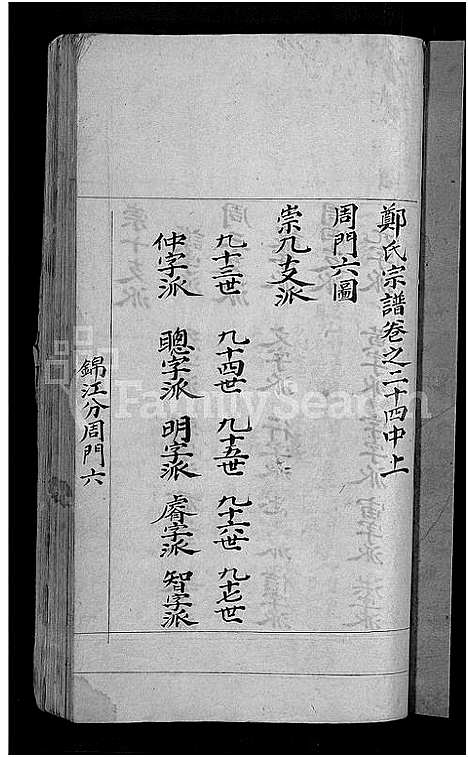 鄭氏宗譜卷之二十四中上
周門六圖
崇九支派
九十三世 九十四世 九十五世 九十六世 九十七世
仲字派 聰字派 明字派 睿字派 智字派
錦江分周門六
FamilySearch